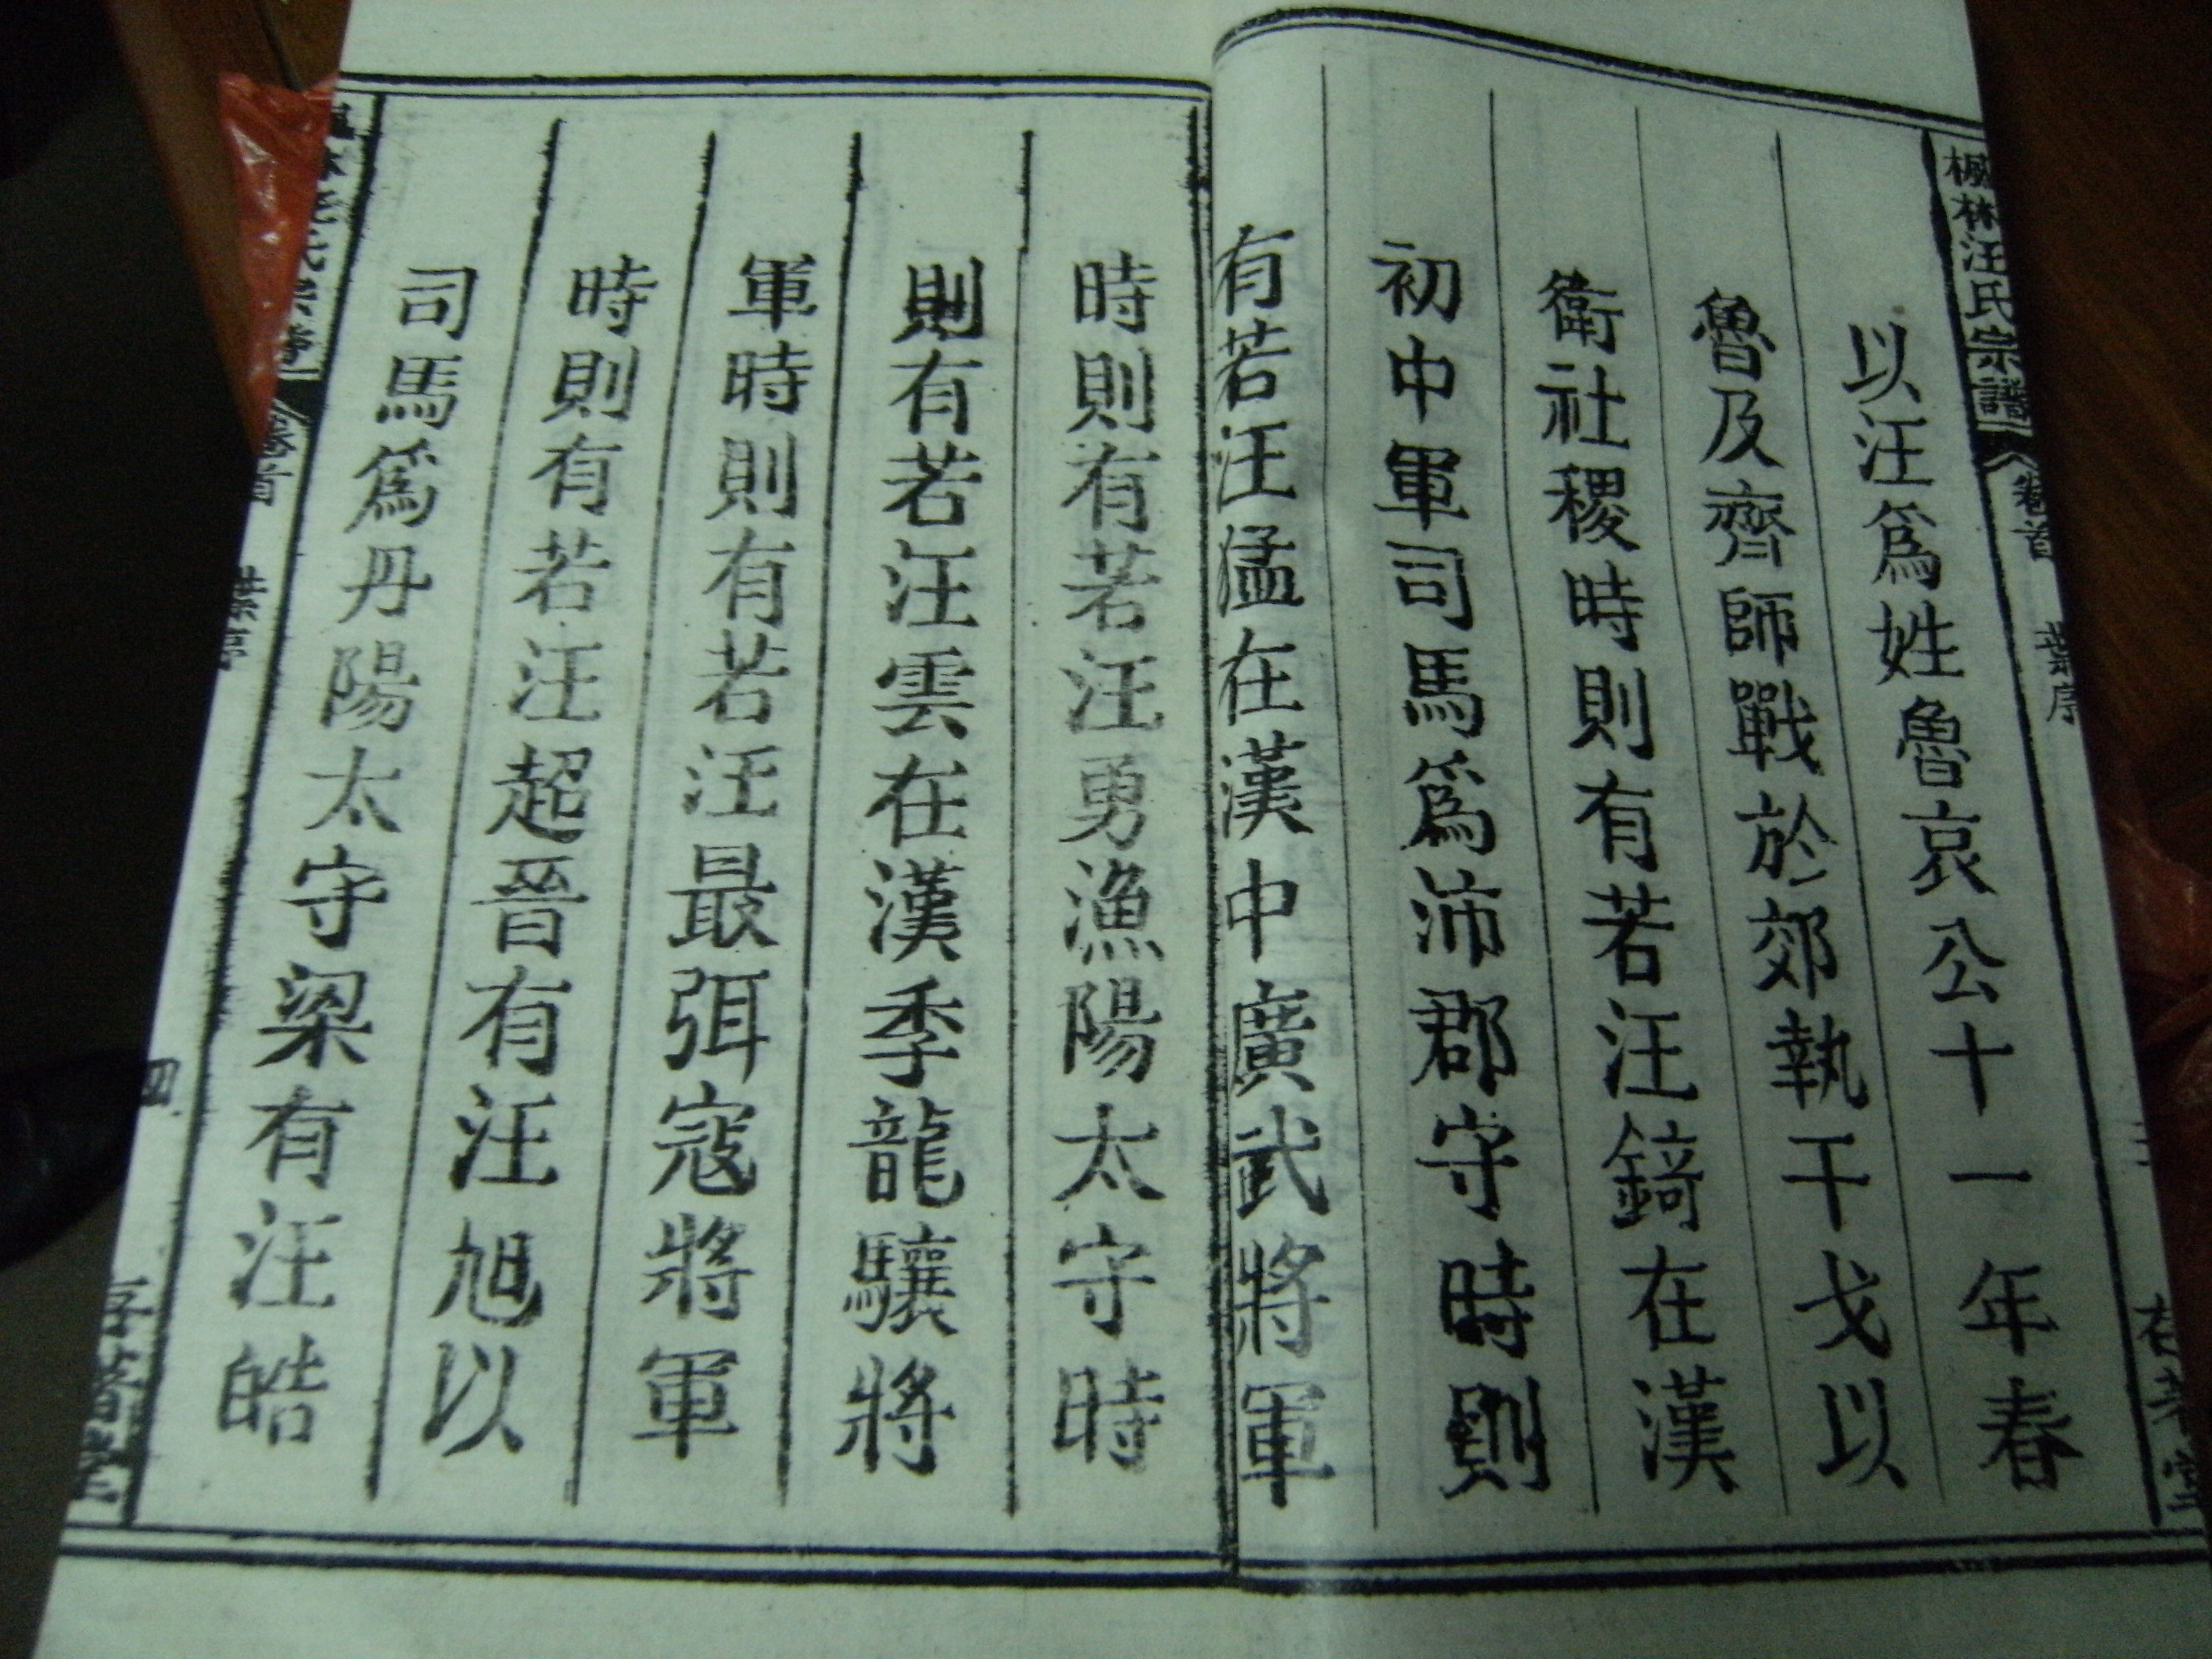 楓林汪氏宗譜 卷首 葉序
以汪爲姓魯哀公十一年春
魯及齊師戰於郊執干戈以
衛社稷時則有若汪錡在漢
初中軍司馬爲沛郡守時則
有若汪猛在漢中廣武將軍
時則有若汪勇漁陽太守時
則有若汪雲在漢季龍驤將
軍時則有若汪最弭寇將軍
時則有若汪超晉有汪旭以
司馬爲丹陽太守梁有汪皓
林汪氏宗譜 卷首 葉序 四